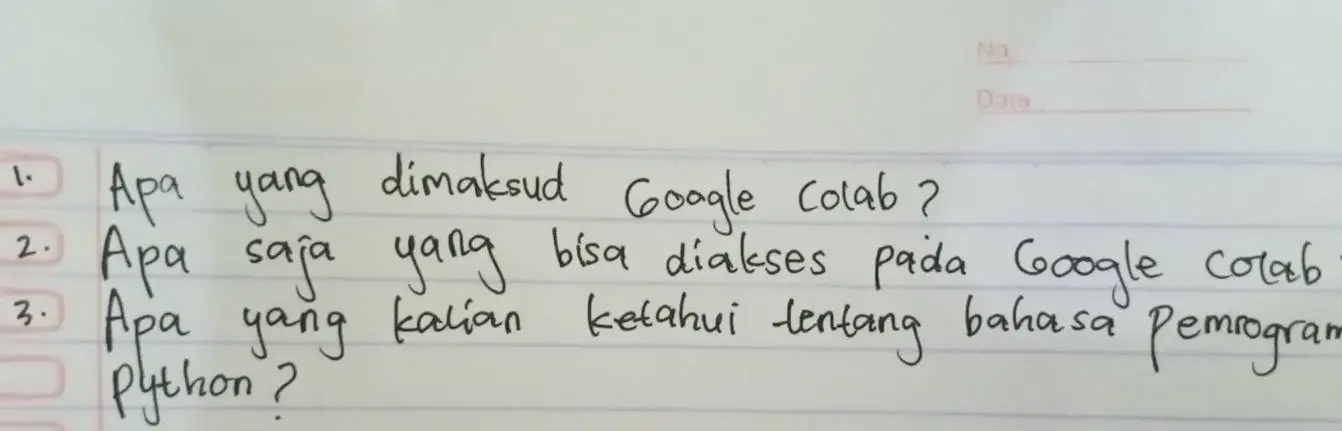 No
Date
1. Apa yang dimaksud Google Colab?
2. Apa saja yang bisa diakses pada Google colab
3. Apa yang kalian ketahui tentang bahasa Pemrogram
python?